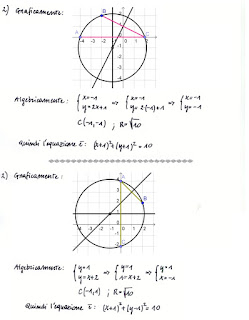 2) Graficamente:
Algebricamente: { x=-1 y=2x+1 => { x=-1 y=2·(-1)+1 => { x=-1 y=-1
C(-1,-1) ; R=√10
Quindi l'equazione è: (x+1)²+(y+1)²=10
2) Graficamente:
Algebricamente: { y=1 y=x+2 => { y=1 1=x+2 => { y=1 x=-1
C(-1,1) ; R=√10
Quindi l'equazione è: (x+1)²+(y-1)²=10